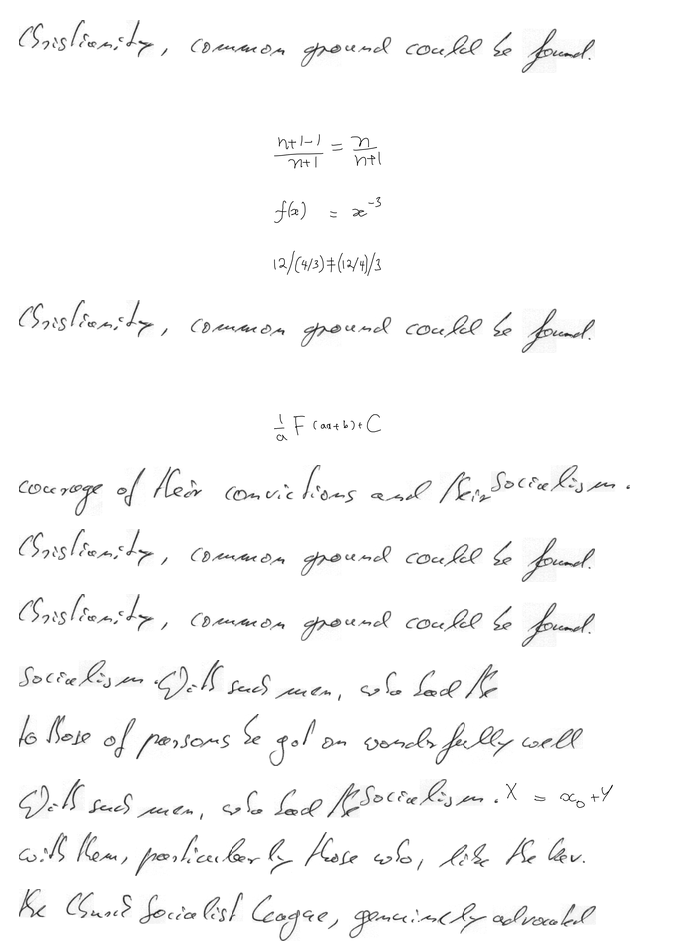 Christianity, common ground could be found.
\frac{n+1-1}{n+1} = \frac{n}{n+1}
f(x) = x^{-3}
12/(4/3)≠(12/4)/3
Christianity, common ground could be found.
\frac{1}{a} F(ax+b)+C
courage of their convictions and their Socialism.
Christianity, common ground could be found.
Christianity, common ground could be found.
Socialism. With such men, who had the
to those of persons he got on wonderfully well
With such men, who had the Socialism. X = x_0 + Y
with them, particularly those who, like the Rev.
the Church Socialist League, genuinely advocated